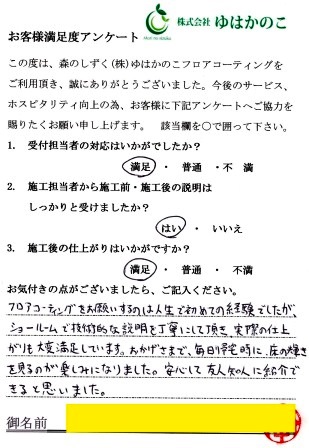 株式会社 ゆはかのこ
お客様満足度アンケート
この度は、森のしずく(株)ゆはかのこフロアコーティングを
ご利用頂き、誠にありがとうございました。今後のサービス、
ホスピタリティ向上の為、お客様に下記アンケートへご協力を
賜りたくお願い申し上げます。 該当欄を○で囲って下さい。
1. 受付担当者の対応はいかがでしたか?
満足 ・ 普通 ・不 満
2. 施工担当者から施工前・施工後の説明は
しっかりと受けましたか?
はい ・ いいえ
3. 施工後の仕上がりはいかがですか?
満足 ・ 普通 ・ 不満
お気付きの点がございましたら、ご記入ください。
フロアコーティングをお願いするのは人生で初めての経験でしたが、
ショールームで技術的な説明を丁寧にして頂き、実際の仕上
がりも大変満足しています。おかげさまで、毎日帰宅時に、床の輝き
を見るのが楽しみになりました。安心して友人知人に紹介で
きると思いました。
御名前